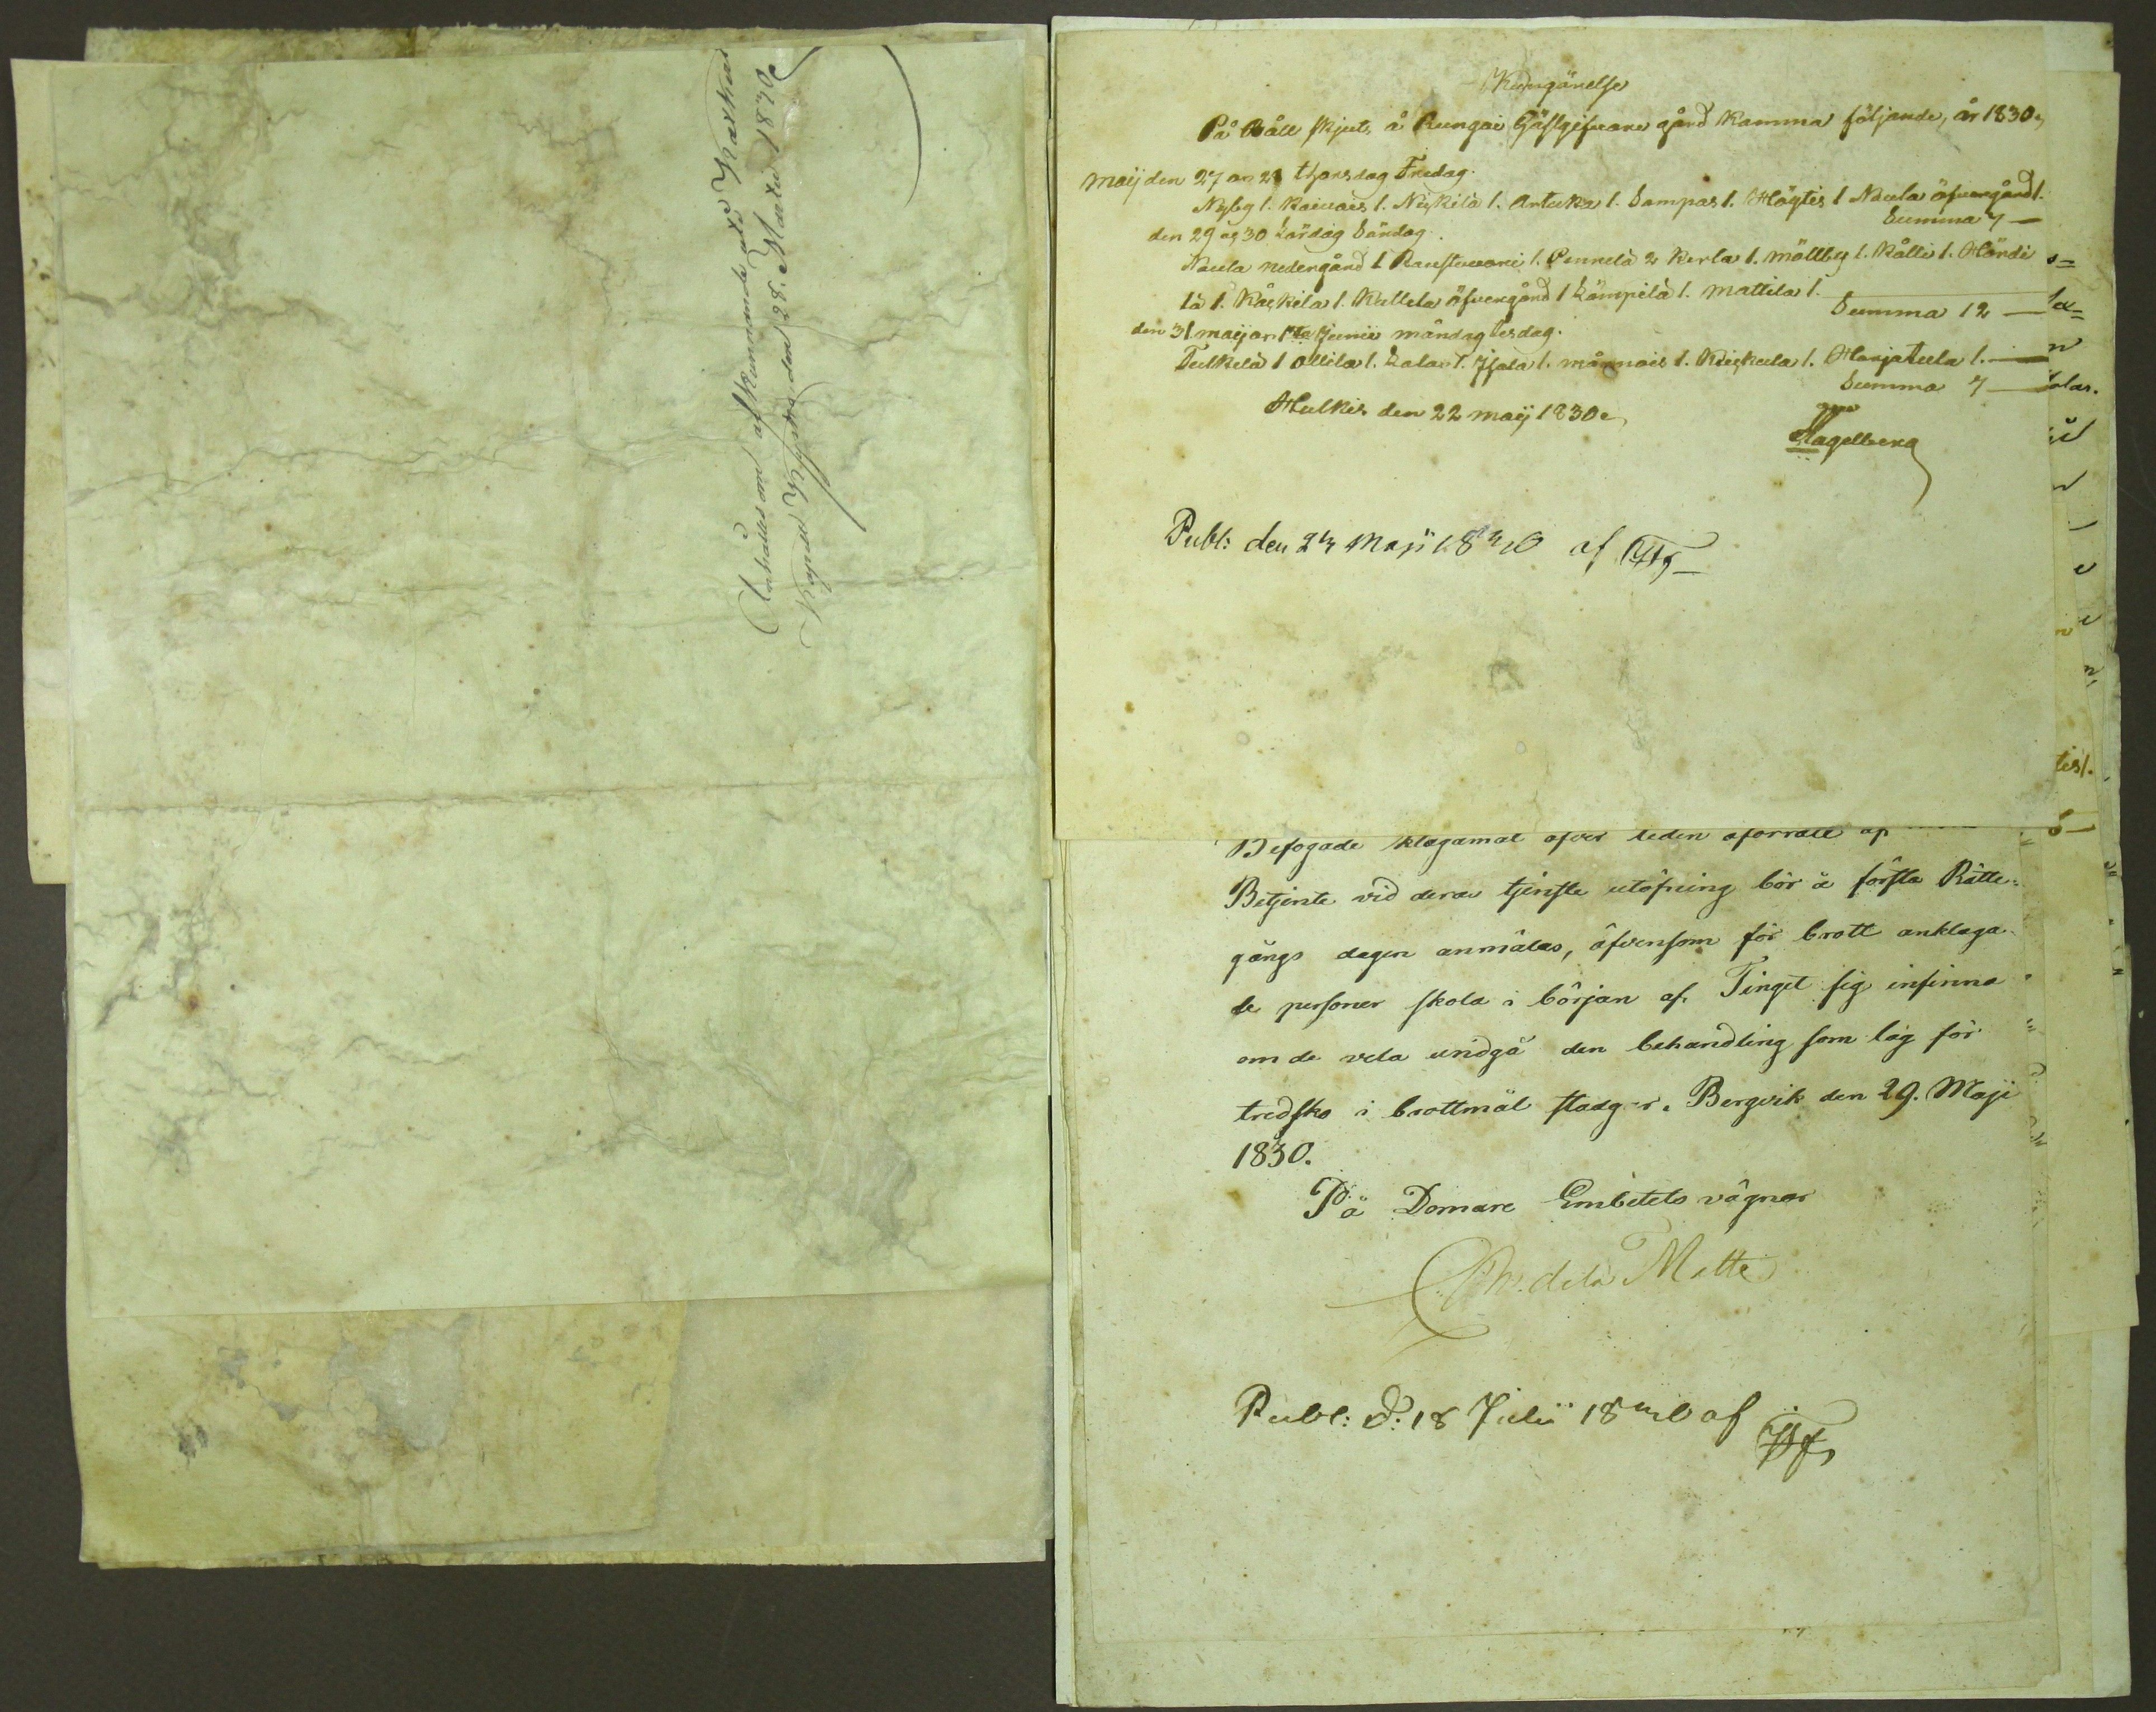 Kungörelse
På Håll skjuts å Rungoi Gästgifvare gård komma följande, år 1830,
Maij den 27 an 28 thorsdag Fredag.
Nyby 1. Kaivois 1. Niskila 1. Artuka 1. Sampas 1. Höytis 1 Naula öfvergård 1.
Summa 7 —
den 29 og 30 Lördag Söndag.
Naula nedergård 1 Raustuvori 1. Pennilä 2 Kerla 1. Möllby 1. Kålli 1. Härdi
lä 1. Käskila 1. Kullela öfvergård 1 Lämpilä 1. Mattila 1.
Summa 12 —
den 31 maij an 1sta Junii måndag tisdag.
Tulkila 1 Ollila 1. Lalax 1. Isola 1. månnois 1. Kieskula 1. Harjatula 1. —
Summa 7 —
Hulkis den 22 maij 1830
Hagelberg
Publ: den 23 Maji 1830 af
Befogade klagomål öfver liden oförrätt af
Betjente vid deras tjenste utöfning bör å första Rätte-
gångs dagen anmälas, äfvensom för brott anklaga-
de personer skola i början af Tinget sig infinna
om de vela undgå den behandling som lag för
tredsko i brottmål stadgar. Bergvik den 29. Maji
1830.
På Domare Embetets vägnar
Publ: d: 18 Julii 1830 af
om afkommande
den 28. Martii 1830